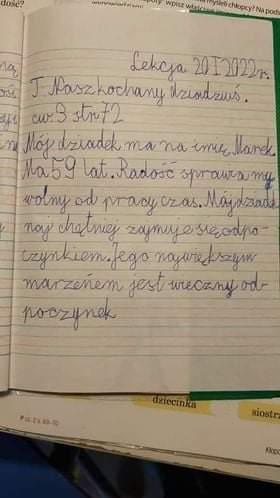 dość?
myśleli chłopcy? Na pods
wpisz właściwe
Lekcja 20I2022r.
T. Nasz kochany dziadziuś.
ćw 3 str 72
Mój dziadek ma na imię Marek
Ma 59 lat. Radość sprawa my
wolny od pracy czas. Mój dziade
naj chętniej zajmuje się odpo-
czynkiem. Jego największym
marzeńem jest wieczny od-
poczynek
dziecinka
siostrz